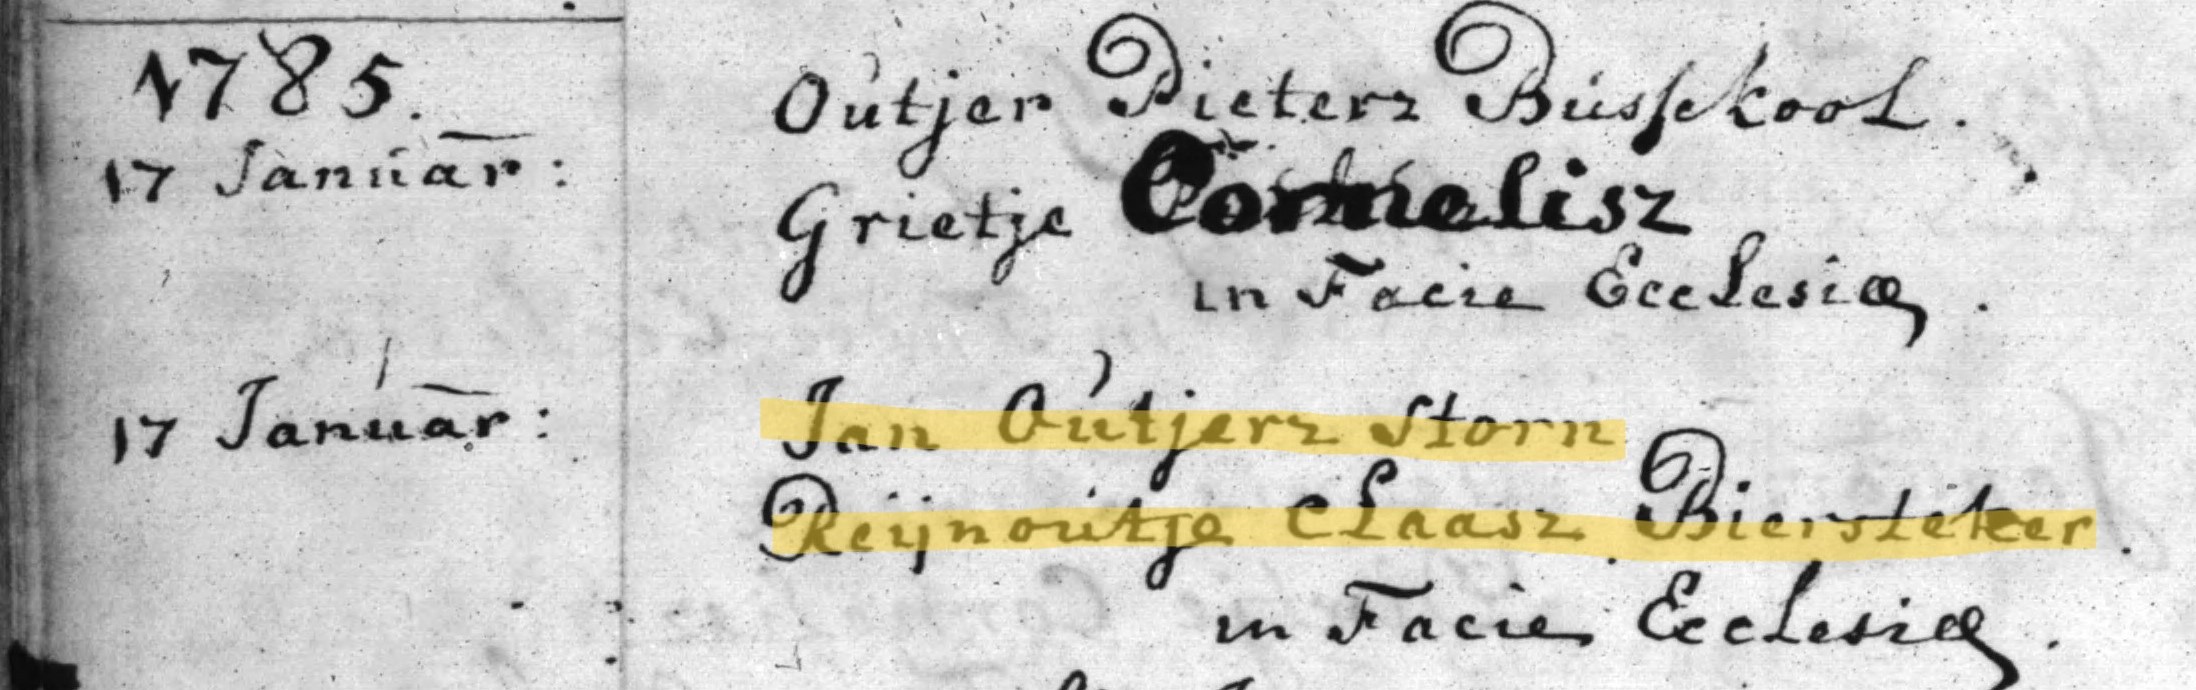 1785.
17 Januar:
Outjer Pieterz Bussekool.
Grietje Cornelisz
in Facie Ecclesiæ.
17 Januar:
Jan Outjerz Storn
Reijnoutje Claasz Biersteker.
in Facie Ecclesiæ.